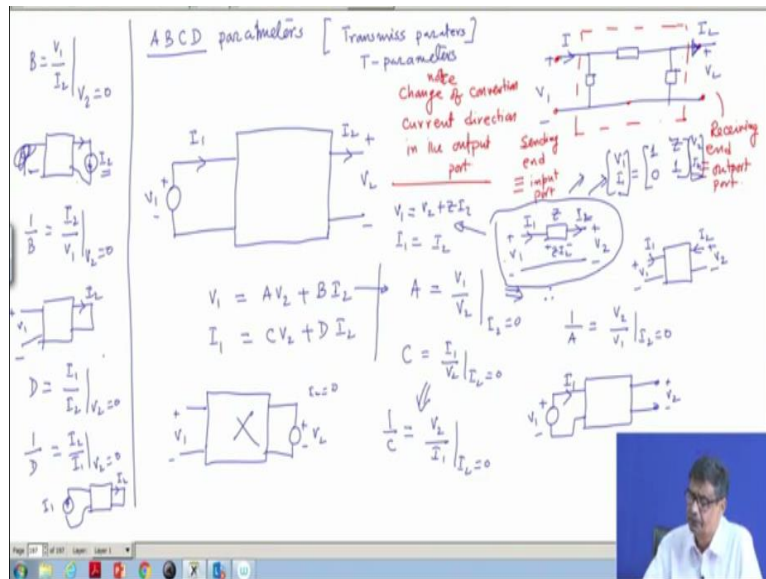 B = V1/I2 |V2=0
I2
1/B = I2/V1 |V2=0
I2
V1
+
-
D = I1/I2 |V2=0
1/D = I2/I1 |V2=0
I1
I2
ABCD paratmeters [Transmiss paraters]
T-parameters
note
Change of Convention
Current direction
in the output
port
I1
I2
+
V1
-
V2
-
V1 = AV2 + BI2
I1 = CV2 + DI2
+
V1
-
I2=0
X
+
V2
-
V1 = V2 + ZI2
I1 = I2
A = V1/V2 |I2=0
C = I1/V2 |I2=0
1/C = V2/I1 |I2=0
I
I2
+
V1
-
+
V2
-
Sending
end
≡ input
port
Receiving
end
≡ output
port
[V1 I1] = [1 Z 0 1] [V2 I2]
I1 Z I2
+ +
V1 +ZI2- V2
- -
I1
I2
+
V1
-
+
V2
-
1/A = V2/V1 |I2=0
I1
+
V1
-
+
V2
-
Page 197 of 197 Layer: Layer 1